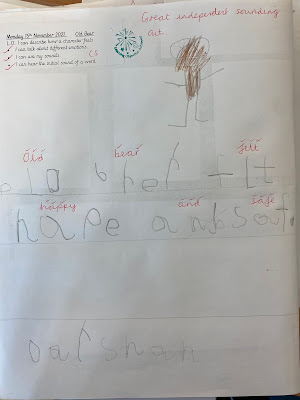 Great independent sounding
out.
Monday 15th November 2021 Old Bear
L.O. I can describe how a character feels
I can talk about different emotions.
I can use my sounds CS
I can hear the initial sound of a word.
Old bear felt
old brer flt
happy and safe
hape anb saf